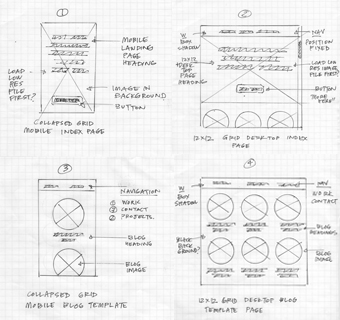 1
MOBILE
LANDING
PAGE
HEADING
LOAD
LOW
RES
FILE
FIRST?
IMAGE IN
BACKGROUND
BUTTON
COLLAPSED GRID
MOBILE INDEX PAGE
2
W
BOX
SHADOW
NAV
POSITION
FIXED
PAGE
HEADING
LOAD LOW
RES IMAGE
FILE FIRST?
BUTTON
12x12 GRID DESKTOP INDEX
PAGE
3
NAVIGATION
1 WORK
2 CONTACT
3 PROJECTS
BLOG
HEADING
BLOG
IMAGE
COLLAPSED GRID
MOBILE BLOG TEMPLATE
4
W
BOX
SHADOW
NAV
WORK
CONTACT
BLOG
HEADINGS
BLOG
IMAGE
12x12 GRID DESKTOP BLOG
TEMPLATE PAGE